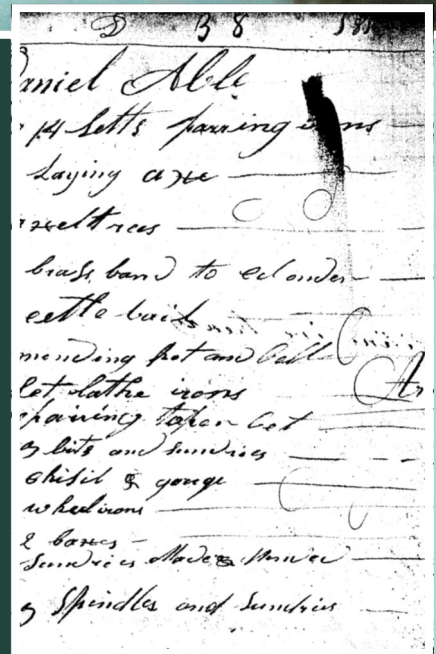 D B 8
Daniel Able
14 Setts parring irons
Laying axe
axeltrees
brass band to
cettle bail
mending pot and ball
Set lathe irons
repairing
bits and sundries
chisil & gouge
wheel irons
2 boxes
Sundries Made &
Spindles and Sundries